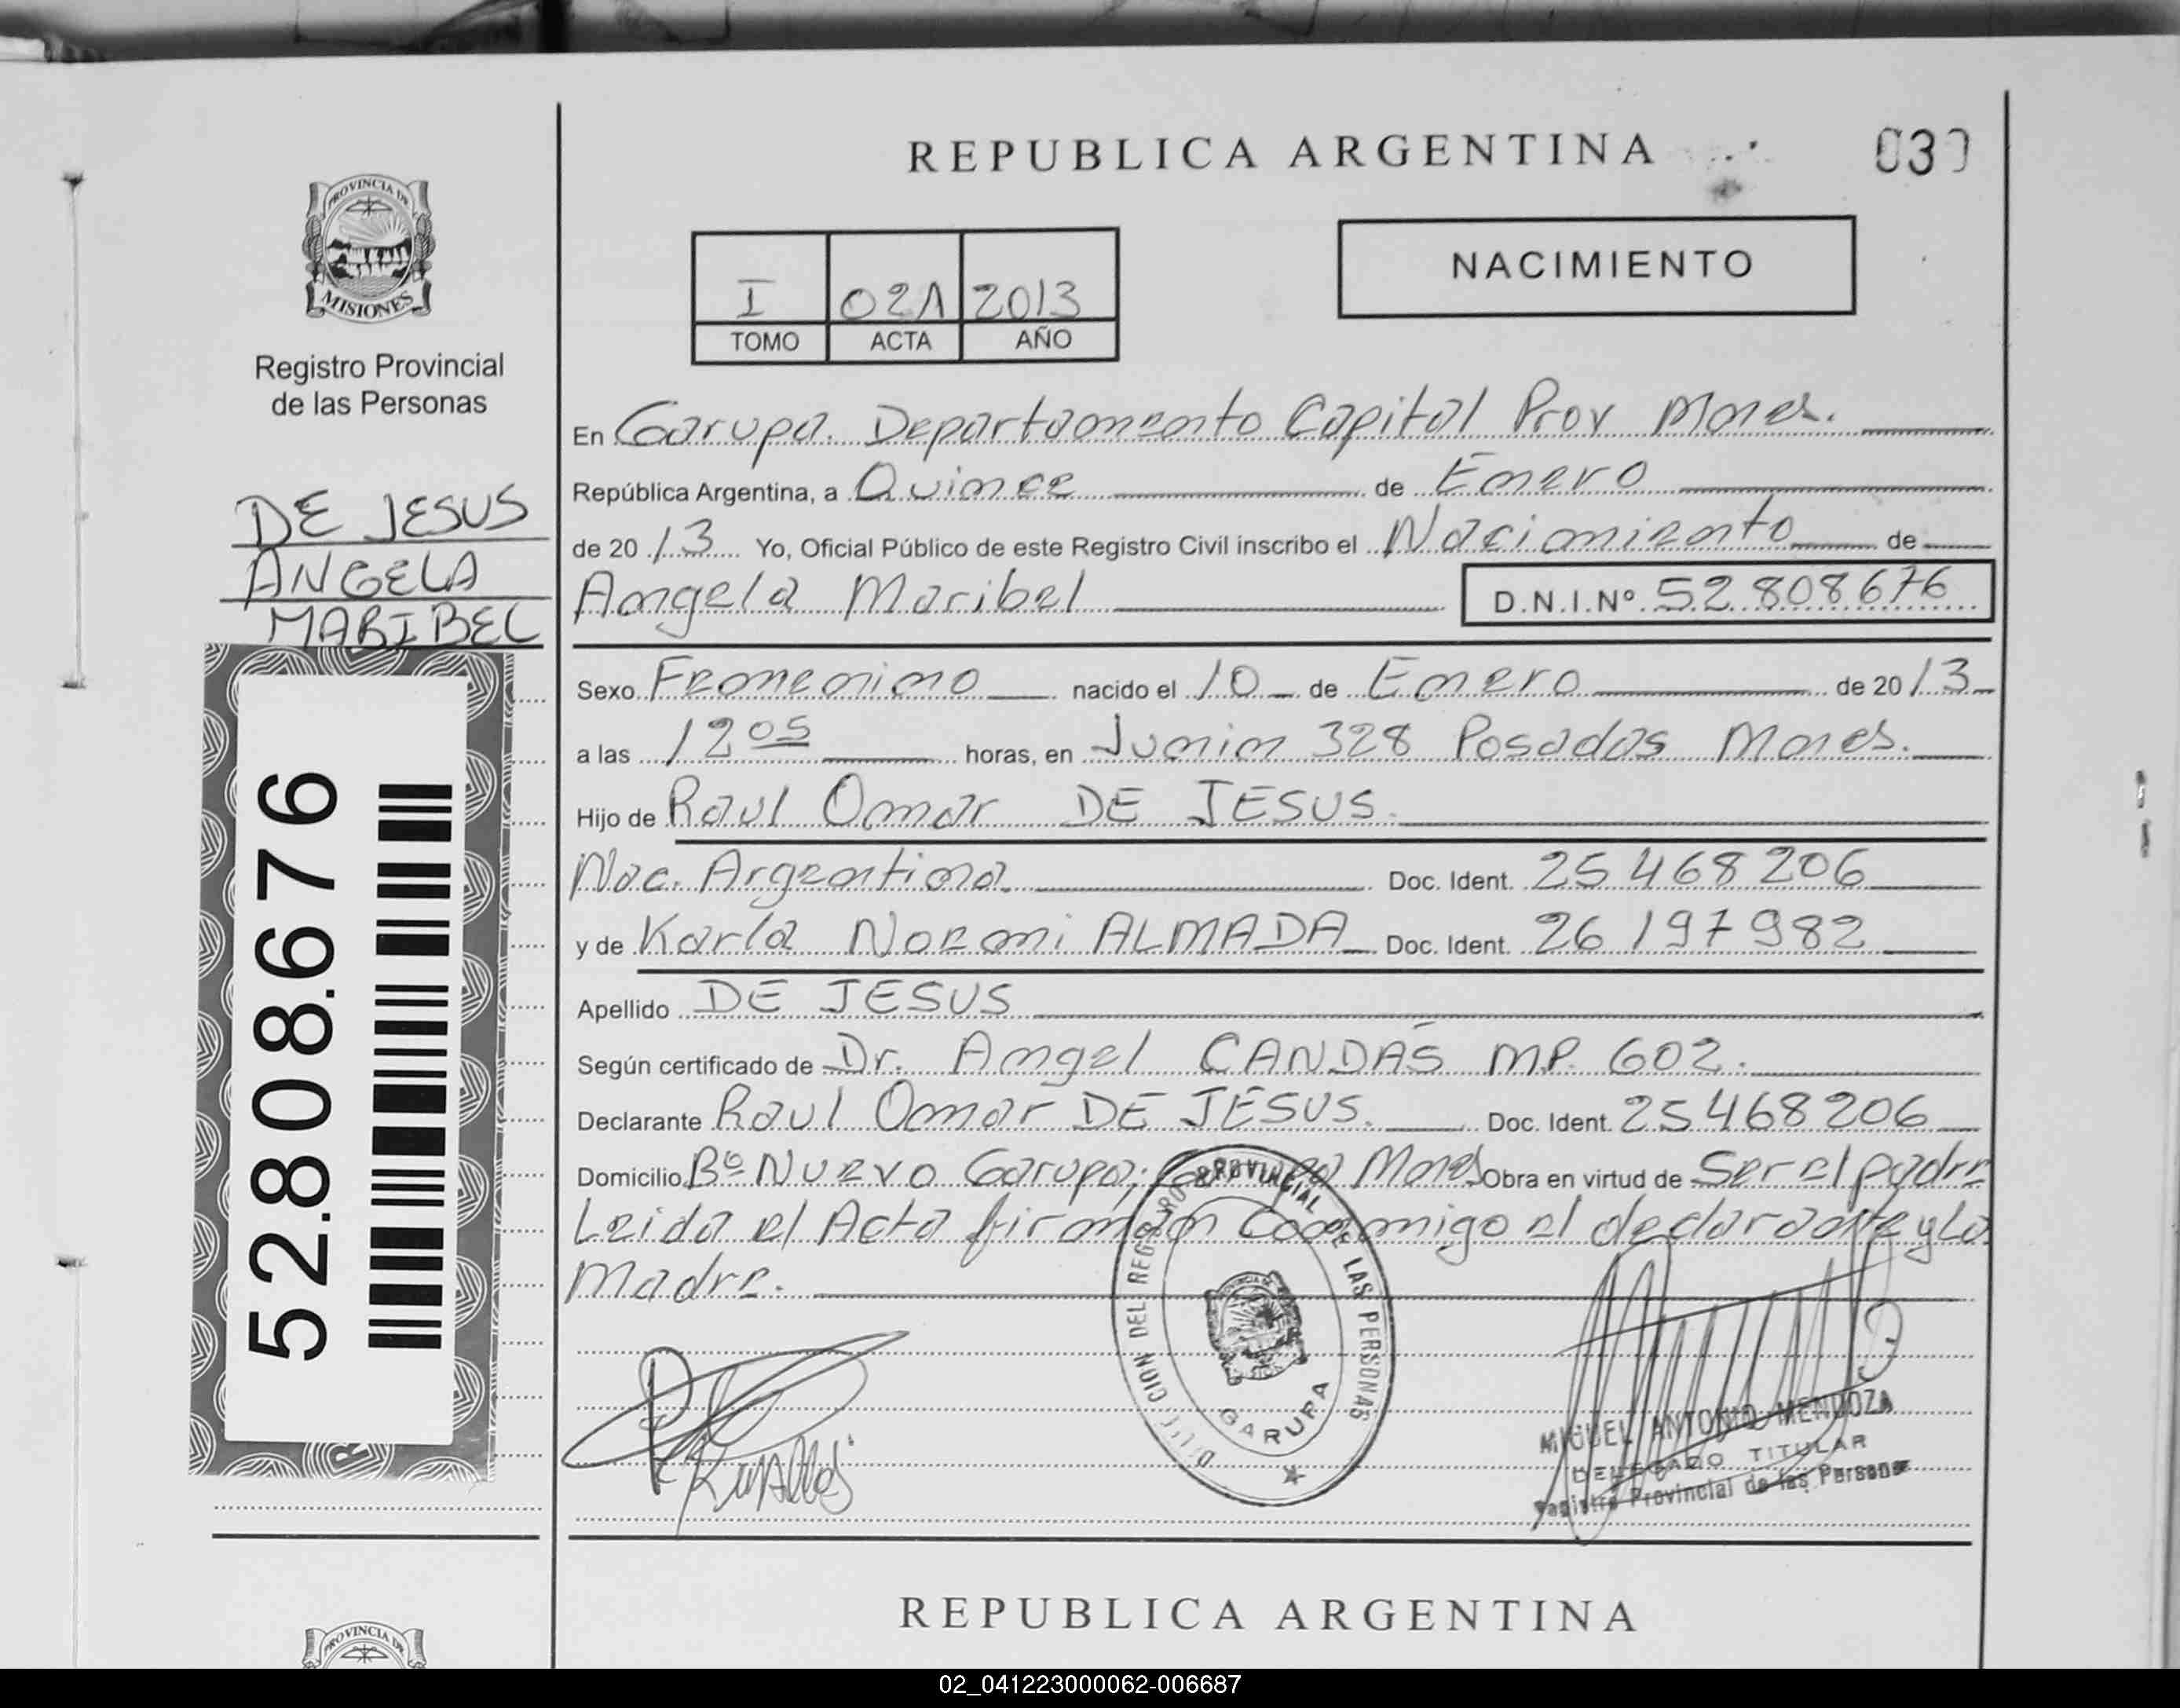 REPUBLICA ARGENTINA
PROVINCIA DE
MISIONES
Registro Provincial
de las Personas
DE JESUS
ANGELA
MARIBEL
52.808.676
NACIMIENTO
I 021 2013
TOMO ACTA AÑO
En Garupa. Departamento Capital Prov Mones.
República Argentina, a Quince de Enero
de 2013 Yo, Oficial Público de este Registro Civil inscribo el Nacimiento de
Angela Maribel D.N.I.Nº 52.808676
Sexo Femenino nacido el 10 de Enero de 2013
a las 12 05 horas, en Junin 328 Posadas Mones.
Hijo de Raul Omar DE JESUS.
Nac. Argentina. Doc. Ident. 25 468 206
y de Karla Noemi ALMADA Doc. Ident. 26 197 982
Apellido DE JESUS
Según certificado de Dr. Angel CANDAS MP. 602.
Declarante Raul Omar DE JESUS. Doc. Ident. 25 468 206
Domicilio Bº Nuevo Garupa; Mones Obra en virtud de Ser el padre
Leida el Acta firman conmigo el declarante y La
Madre.
DIRECCION DEL REGISTRO PROVINCIAL DE LAS PERSONAS
GARUPA
MIGUEL ANTONIO MENDOZA
DELEGADO TITULAR
Registro Provincial de las Personas
REPUBLICA ARGENTINA
PROVINCIA DE
02_041223000062-006687